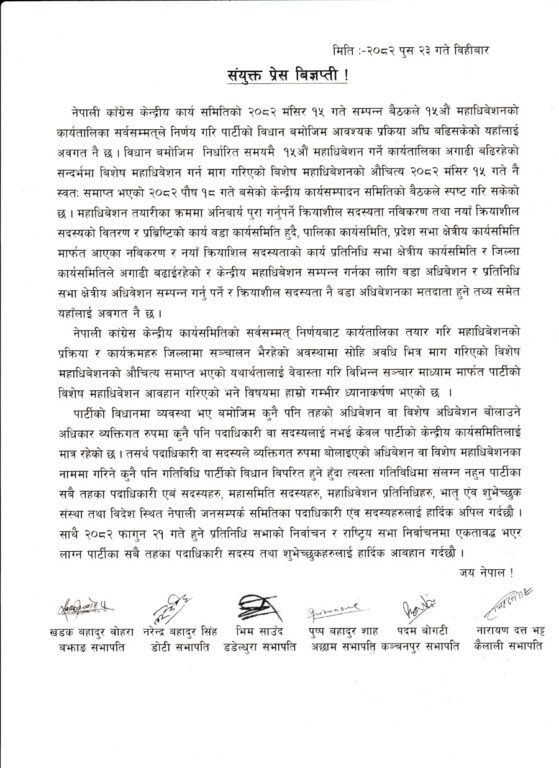 मिति :-२०८२ पुस २३ गते विहीबार
संयुक्त प्रेस बिज्ञप्ती !
नेपाली काँग्रेस केन्द्रीय कार्य समितिको २०८२ मंसिर १५ गते सम्पन्न बैठकले १५औं महाधिबेशनको
कार्यतालिका सर्वसम्मत्‌ले निर्णय गरि पार्टीको विधान बमोजिम आवश्यक प्रकिया अघि बढिसकेको यहाँलाई
अवगत नै छ । विधान बमोजिम निर्धारित समयमै १५औं महाधिबेशन गर्ने कार्यतालिका अगाडी बढिरहेको
सन्दर्भमा विशेष महाधिवेशन गर्न माग गरिएको बिशेष महाधिबेशनको औचित्य २०८२ मंसिर १५ गते नै
स्वतः समाप्त भएको २०८२ पौष १८ गते बसेको केन्द्रीय कार्यसम्पादन समितिको बैठकले स्पष्ट गरि सकेको
छ । महाधिबेशन तयारीका क्रममा अनिवार्य पुरा गर्नुपर्ने क्रियाशील सदस्यता नबिकरण तथा नयाँ क्रियाशील
सदस्यको वितरण र प्रब्रिष्टिको कार्य वडा कार्यसमिति हुदै, पालिका कार्यसमिति, प्रदेश सभा क्षेत्रीय कार्यसमिति
मार्फत आएका नबिकरण र नयाँ क्रियाशिल सदस्यताको कार्य प्रतिनिधि सभा क्षेत्रीय कार्यसमिति र जिल्ला
कार्यसमितिले अगाढी बढाईरहेको र केन्द्रीय महाधिबेशन सम्पन्न गर्नका लागि वडा अधिबेशन र प्रतिनिधि
सभा क्षेत्रीय अधिवेशन सम्पन्न गर्नु पर्ने र क्रियाशील सदस्यता नै बडा अधिबेशनका मतदाता हुने तथ्य समेत
यहाँलाई अवगत नै छ ।
नेपाली कांग्रेस केन्द्रीय कार्यसमितिको सर्वसम्मत् निर्णयबाट कार्यतालिका तयार गरि महाधिबेशनको
प्रक्रिया र कार्यक्रमहरु जिल्लामा सञ्चालन भैरहेको अवस्थामा सोहि अवधि भित्र माग गरिएको विशेष
महाधिबेशनको औचित्य समाप्त भएको यथार्थतालाई बेवास्ता गरि विभिन्न सञ्चार माध्याम मार्फत पार्टीको
विशेष महाधिवेशन आवहान गरिएको भने विषयमा हाम्रो गम्भीर ध्यानाकर्षण भएको छ ।
पार्टीको विधानमा व्यवस्था भए बमोजिम कुनै पनि तहको अधिबेशन वा विशेष अधिबेशन बोलाउने
अधिकार ब्यक्तिगत रुपमा कुनै पनि पदाधिकारी वा सदस्यलाई नभई केवल पार्टीको केन्द्रीय कार्यसमितिलाई
मात्र रहेको छ । तसर्थ पदाधिकारी वा सदस्यले व्यक्तिगत रुपमा बोलाइएको अधिबेशन वा विशेष महाधिबेशनका
नाममा गरिने कुनै पनि गतिविधि पार्टीको विधान विपरित हुने हुँदा त्यस्ता गतिविधिमा संलग्न नहुन पार्टीका
सबै तहका पदाधिकारी एबं सदस्यहरु, महासमिति सदस्यहरु, महाधिवेशन प्रतिनिधिहरु, भातृ एंव शुभेच्छुक
संस्था तथा विदेश स्थित नेपाली जनसम्पर्क समितिका पदाधिकारी एंव सदस्यहरुलाई हार्दिक अपिल गर्दछौ ।
साथै २०८२ फागुन २१ गते हुने प्रतिनिधि सभाको निर्वाचन र राष्ट्रिय सभा निर्वाचनमा एकताबद्ध भएर
लाग्न पार्टीका सबै तहका पदाधिकारी सदस्य तथा शुभेच्छुकहरुलाई हार्दिक आवहान गर्दछौ ।
जय नेपाल !
खडक बहादुर बोहरा नरेन्द्र बहादुर सिंह भिम साउंद पुष्प बहादुर शाह पदम बोगटी नारायण दत्त भट्ट
बझाङ सभापति डोटी सभापति डडेल्धुरा सभापति अछाम सभापति कञ्चनपुर सभापति कैलाली सभापति